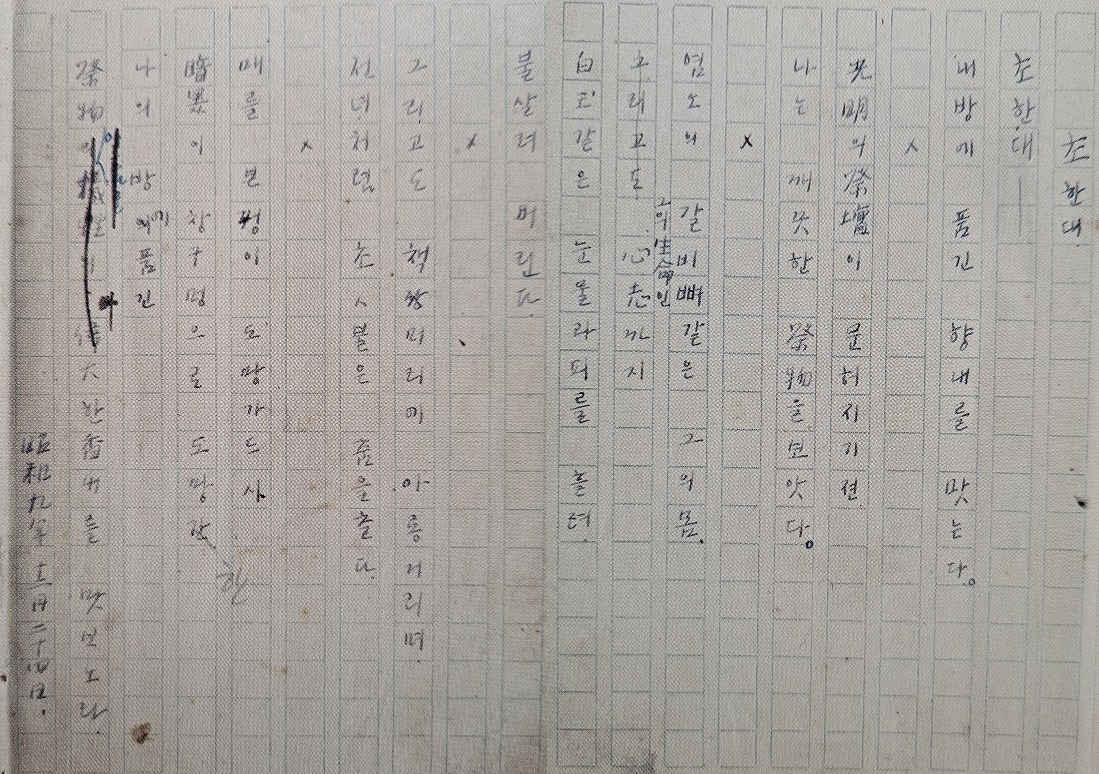 초 한대.
초 한대—
내 방에 품긴 향내를 맛는다。
×
光明의 祭壇이 문허지기 젼
나는 깨끗한 祭物을 보앗다。
×
염소의 갈비뼈 같은 그의 몸.
그의 生命인 心志까지
白玉같은 눈물과 피를 흘려.
불살려 버린다.
×
그리고도 책상머리에 아롱거리며
선녀처럼 초ㅅ불은 춤을 춘다.
×
매를 본 꿩이 도망가드시
暗黑이 창구멍으로 도망간
한
나의 방에 품긴
祭物의 偉大한 香내를 맛보노라.
昭和九年十二月二十四日.